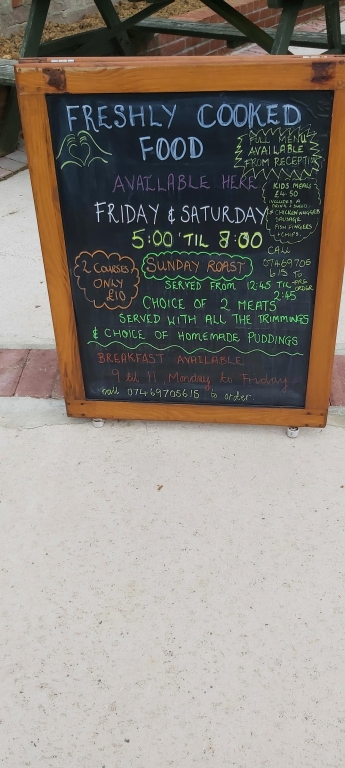 FRESHLY COOKED
FOOD
FULL MENU
AVAILABLE
FROM RECEPTION
AVAILABLE HERE
FRIDAY & SATURDAY
5:00 'TIL 8:00
KIDS MEAL
£4.50
INCLUDES A
DRINK &
CHICKEN NUGGETS
SAUSAGE
FISH FINGERS
+ CHIPS
CALL
07469705
615 TO
PRE
ORDER
2 COURSES
ONLY
£10
SUNDAY ROAST
SERVED FROM 12:45 TIL
2:45
CHOICE OF 2 MEATS
SERVED WITH ALL THE TRIMMINGS
& CHOICE OF HOMEMADE PUDDINGS
BREAKFAST AVAILABLE
9 til 11 Monday to Friday
call 07469705615 to order.